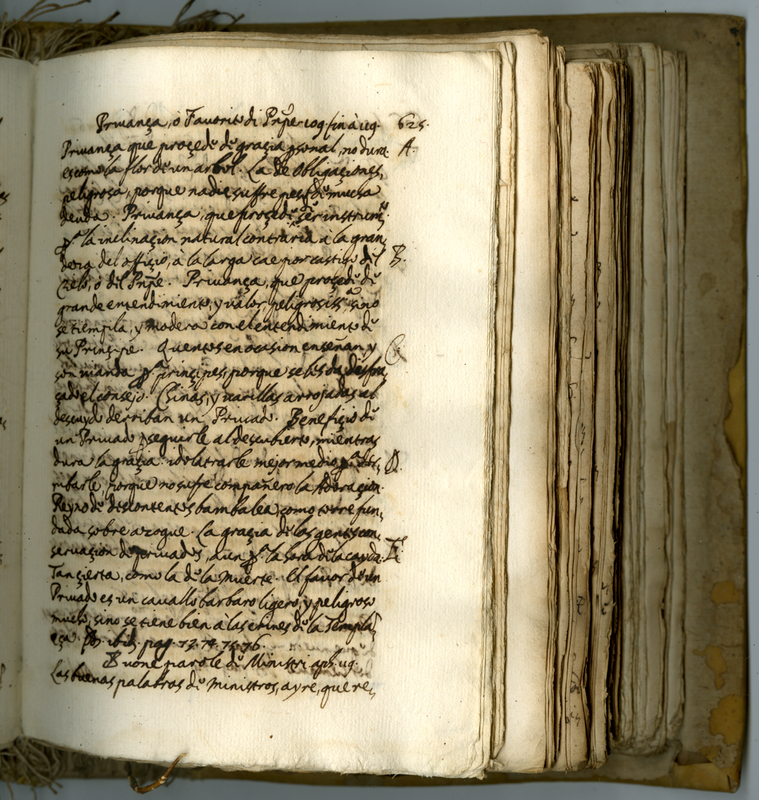 Priuança, ò Favorito di Prnpe cog. fin à ug. 625.
Priuança que proçede de grazia psonal, no dura A.
es como la flor de un arbol. La de Obligaçiones,
peligrosa, porque nadie suffre peso de mucha
deuda. Priuança, que proçede de ser instrumto
pa la inclinaçion natural contraria à la gran,
deza del offiçio, a la larga cae por castigo del B.
Cielo, ò del Prnpe. Priuança, que proçede di
grande entendimiento, y valor peligrosissa sino
se tiempla, y modera con el entendimiento de
su Prinçipe. Quentos en ocasion enseñan, y C
son uianda pa prinçipes, porque se les da disfra,
çado el consejo. Chinas, y uarillas arrojadas al
descuydo derriban un Priuado. Benefiçio de
un Priuado seguirle al descubierto, mientras
dura la grazia: idolatrarle mejor medio pa der, D.
ribarle, porque no sufre compañero la Adoraçion.
Reyno de discontentos bambalea, como torre fun,
dada sobre azogue. La grazia de las gentes con,
seruaçion de priuados, aun pa la hora de la cayda. E
Tan çierta, como la de la muerte. El fauor de un
Priuado es un cauallo barbaro ligero, y peligroso
mucho, sino se tiene bien a las crines de la Templa,
ça. ibid. pag. 73. 74. 75. 76.
Buone parole de Ministri aph. ug.
Las buenas palabras de ministros, ayre, que re,